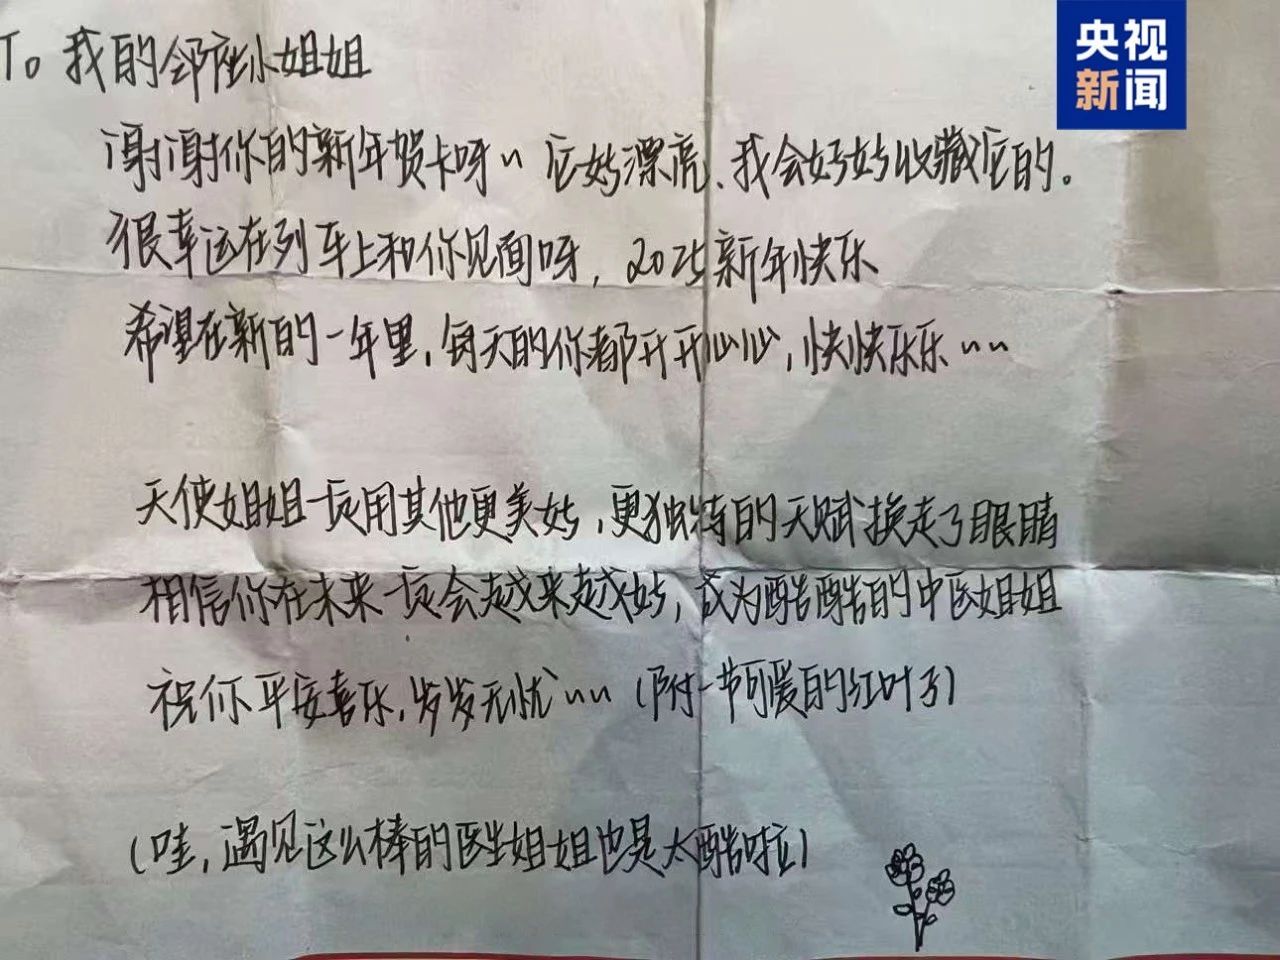 To 我的邻座小姐姐
央视
新闻
谢谢你的新年贺卡呀~ 它好漂亮、我会好好收藏它的。
很幸运在列车上和你见面呀，2025新年快乐
希望在新的一年里，每天的你都开开心心，快快乐乐~~
天使姐姐一定用其他更美好，更独特的天赋换走了眼睛
相信你在未来一定会越来越好，成为酷酷的中医姐姐
祝你平安喜乐，岁岁无忧~~（附一节可爱的红叶子）
（哇，遇见这么棒的医生姐姐也是太酷啦）